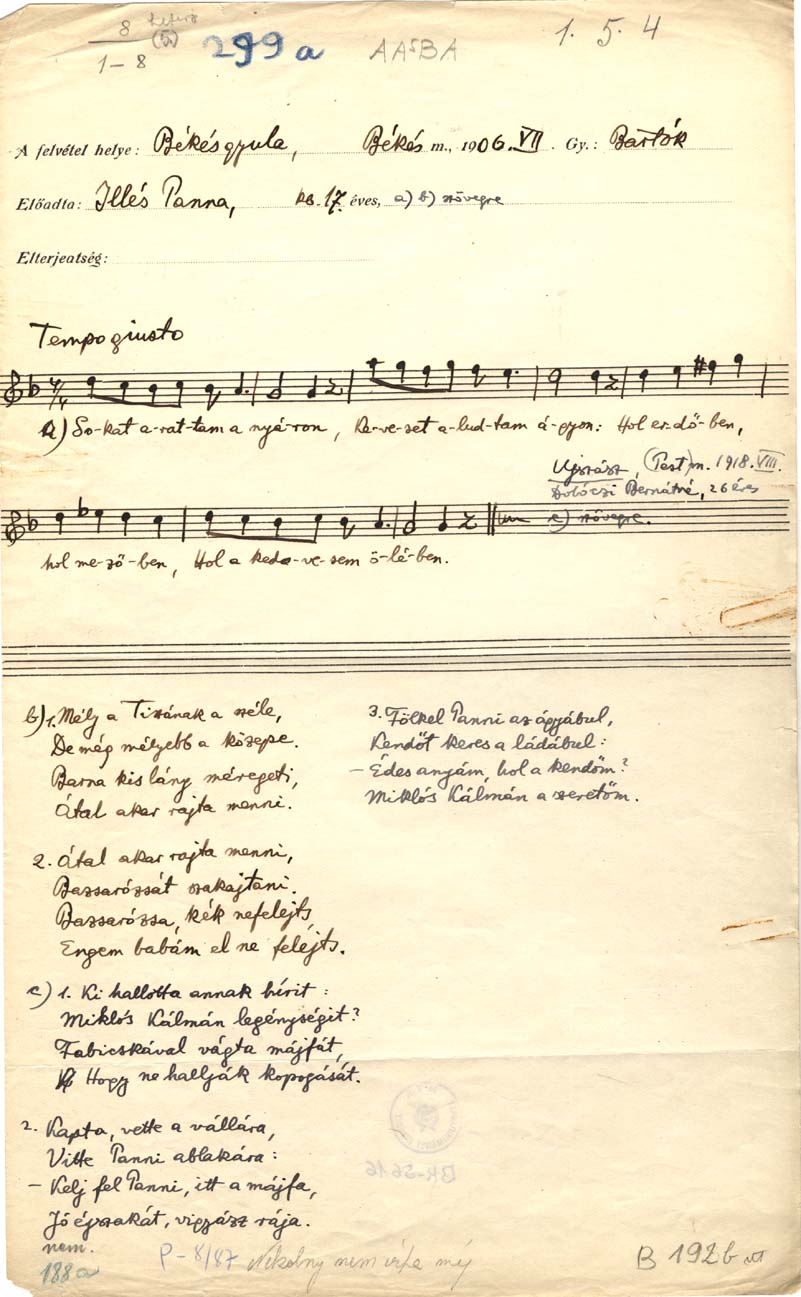 8
1–8
(5)
299a
AA⁵BA
1. 5. 4
A felvétel helye: Békésgyula, Békés m., 1906. VII. Gy.: Bartók
Előadta: Illés Panna, kb. 17 éves, a) b) szövegre
Elterjedtség:
Tempo giusto
a) So-kat a-rat-tam a nyá-ron, Ke-ve-set a-lud-tam á-gyon: Hol er-dő-ben,
Ujszász, (Pest) m. 1918. VIII.
Bernátné, 26 éves
c) szövegre.
hol me-ző-ben, Hol a ked-ve-sem ö-lé-ben.
b) 1. Mély a Tiszának a széle,
De még mélyebb a közepe.
Barna kis lány méregeti,
Átal akar rajta menni.
2. Átal akar rajta menni,
Bazsarózsát szakajtani.
Bazsarózsa, kék nefelejts,
Engem babám el ne felejts.
c) 1. Ki hallotta annak hírit:
Miklós Kálmán legénységit?
Fabicskával vágta májfát,
Hogy ne hallják kopogását.
2. Kapta, vette a vállára,
Vitte Panni ablakára:
– Kelj fel Panni, itt a májfa,
Jó éjszakát, vigyázz rája.
3. Fölkel Panni az ágyábul,
Kendőt keres a ládábul:
– Édes anyám, hol a kendőm?
Miklós Kálmán a szeretőm.
nem.
188a
P-8/87
nem
még
B 192b
BR-5616